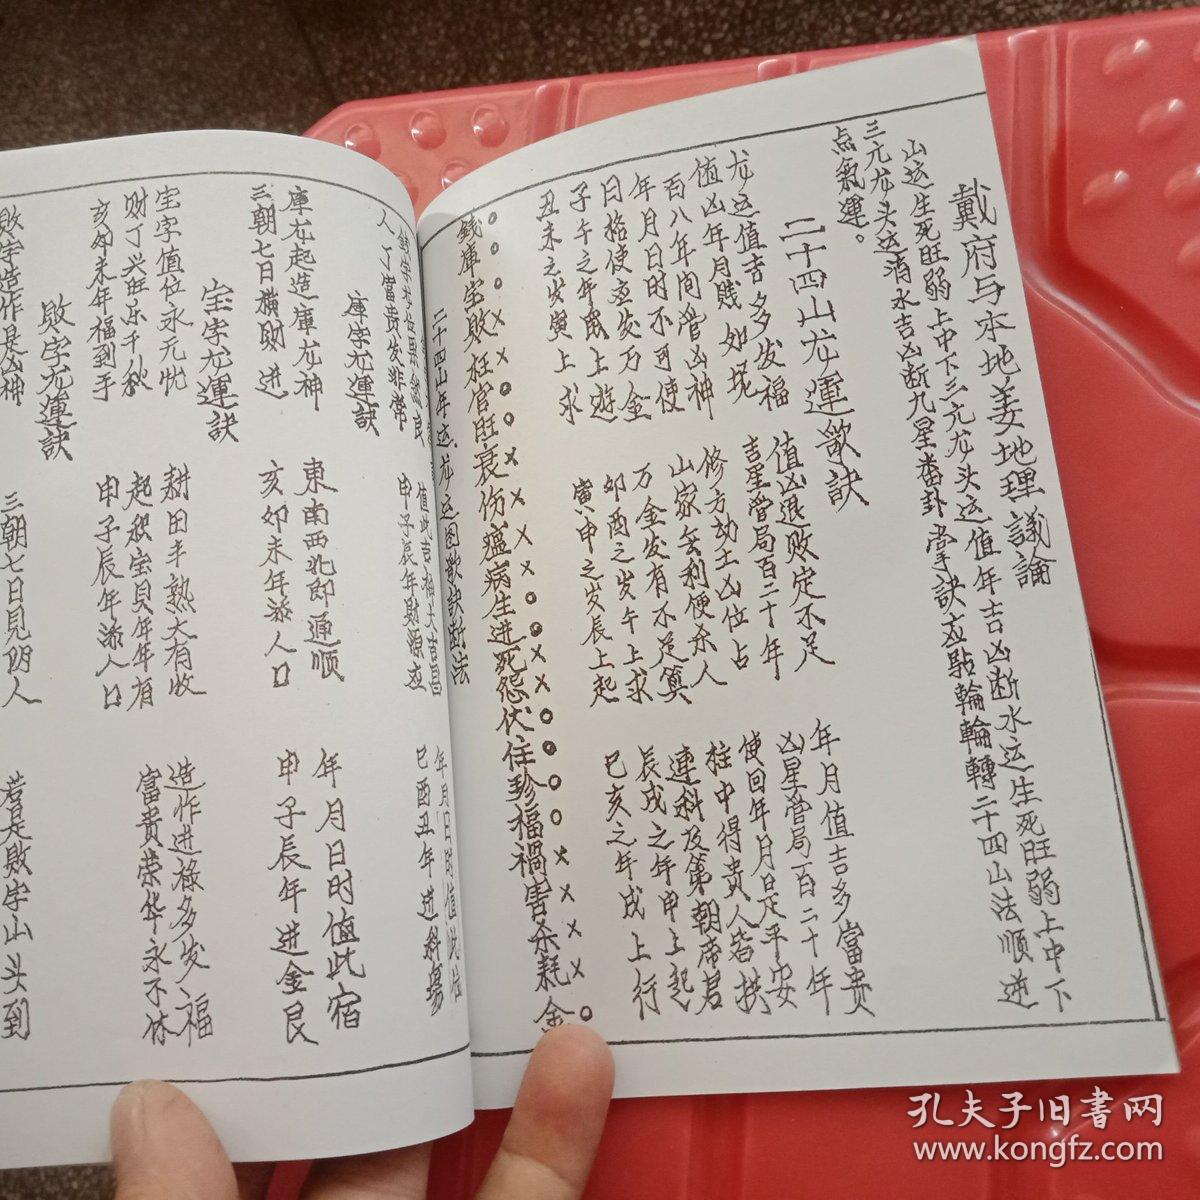 戴府与本地姜地理議論
山运生死旺弱上中下三亢龙头运值年吉凶断水运生死旺弱上中下
三亢龙头运消水吉凶断九星番卦掌訣五點輪輪轉二十四山法順逆
点氣運。
二十四山龙運歌訣
龙运值吉多发福 值凶退败定不足 年月值吉多富贵
值凶年月贱如坭 吉星管局百二十年 凶星管局百二十年
百八年间管凶神 修方动土凶位占 使回年月是平安
年月日时不可使 山家無利便杀人 柱中得贵人若拱
日格使五发万金 万金发有不足算 連科及第朝帝君
子午之年 上遊 卯酉之岁午上求 辰戌之年申上起
丑未之岁寅上求 寅申之岁辰上起 巳亥之年戌上行
錢庫宝败枉官旺衰伤瘟病生进死怨伏住珍福禍害杀耗金
二十四山年运龙运图歌訣断法
值此吉 大吉昌 年月日时值此位
人丁富贵发非常 申子辰年財源 巳酉丑年进科場
庫字龙運訣
庫龙起造庫龙神 東南西北即通顺 年月日时值此宿
三朝七日横财进 亥卯未年添人口 申子辰年进金良
宝字龙運訣
宝字值位永无忧 耕田丰熟大有收 造作进禄多发福
财丁兴旺乐千秋 起积宝贝年年有 富贵荣华永不休
亥卯未年福到手 申子辰年添人口
败字龙運訣
败字造作是凶神 三朝七日見阴人 若是败字山头到
孔夫子旧书网
www.kongfz.com